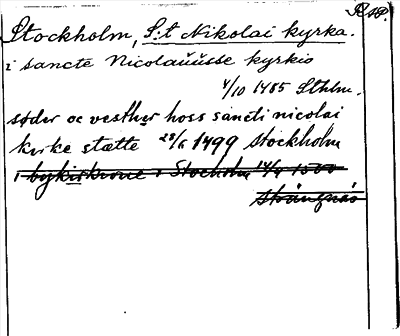 R sp.
Stockholm, S:t Nikolai kyrka.
i sancte Nicolauusse kyrkio
4/10 1485 Sthlm.
søder oc vesther hoss sancti nicolai
kirke stætte 28/6 1499 stockholm
i Stocholm 14/4 1500
strängnäs